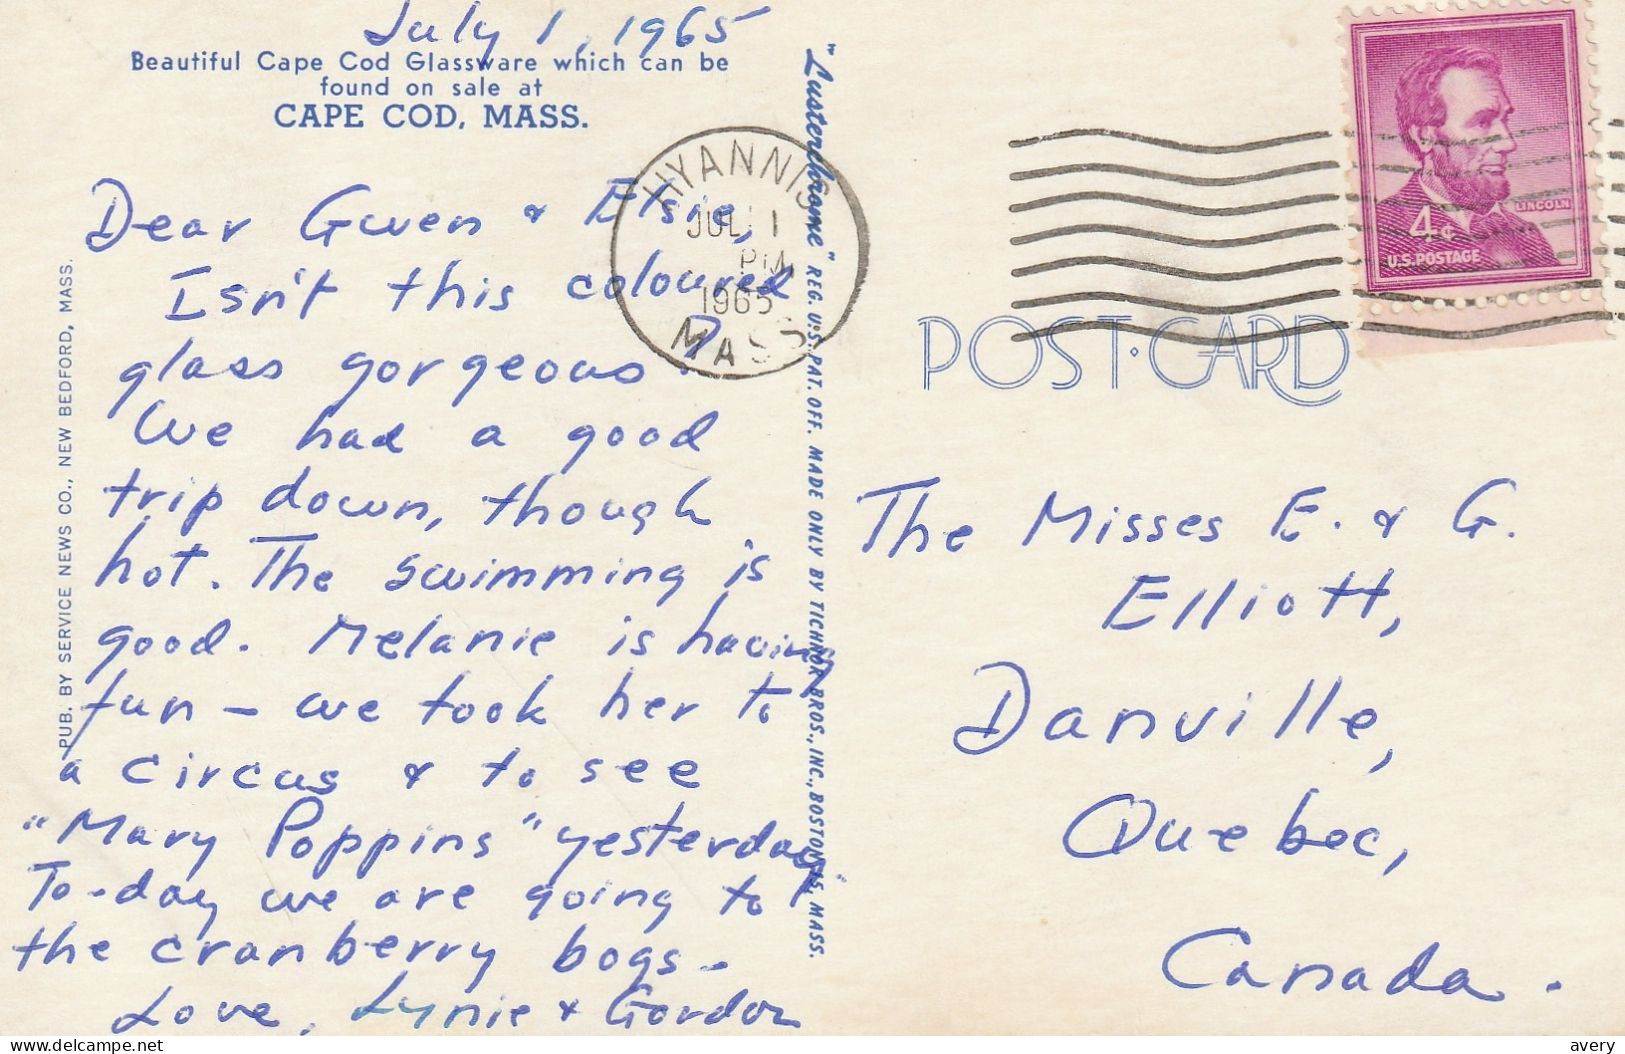 July 1, 1965
Beautiful Cape Cod Glassware which can be
found on sale at
CAPE COD, MASS.
Dear Gwen & Elsie,
Isn't this coloured
glass gorgeous?
We had a good
trip down, though
hot. The swimming is
good. Melanie is having
fun - we took her to
a circus & to see
"Mary Poppins" yesterday.
To-day we are going to
the cranberry bogs -
Love, Lynie & Gordon
PUB. BY SERVICE NEWS CO., NEW BEDFORD, MASS.
"Lusterchrome" REG. U.S. PAT. OFF. MADE ONLY BY TICHNOR BROS., INC., BOSTON 15, MASS.
HYANNIS
JUL 1
PM
1965
MASS
LINCOLN
4¢
U.S. POSTAGE
POST·CARD
The Misses E. & G.
Elliott,
Danville,
Quebec,
Canada.
delcampe.net
avery